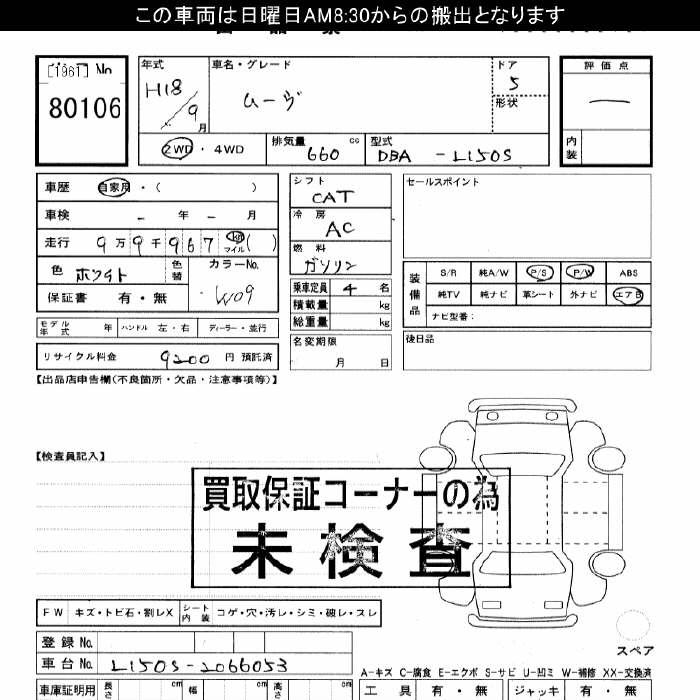 この車両は日曜日AM8:30からの搬出となります
[1961] No
80106
年式
H18/9月
車名・グレード
ムーヴ
ドア
5
形状
2WD・4WD
排気量
660 cc
型式
DBA - L150S
評価点
―
内装
車歴 自家用・( )
車検 - 年 - 月
走行 9万9千967 km マイル ( )
色 ホワイト
色替
カラーNo.
W09
保証書 有・無
モデル年式 年
ハンドル 左・右
ディーラー・並行
リサイクル料金 9200 円 預託済
シフト
CAT
冷房
AC
燃料
ガソリン
乗車定員 4 名
積載量 kg
総重量 kg
名変期限
月 日
セールスポイント
装備品
S/R 純A/W P/S P/W ABS
純TV 純ナビ 革シート 外ナビ エアB
ナビ型番:
後日品
【出品店申告欄(不良箇所・欠品・注意事項等)】
【検査員記入】
買取保証コーナーの為
未検査
FW キズ・トビ石・割レX
シート内装 コゲ・穴・汚レ・シミ・破レ・スレ
登録 No.
車台 No. L150S-2066053
スペア
A-キズ C-腐食 E-エクボ S-サビ U-凹ミ W-補修 XX-交換済
車庫証明用 長さ cm 幅 cm 高さ cm
工具 有・無 ジャッキ 有・無